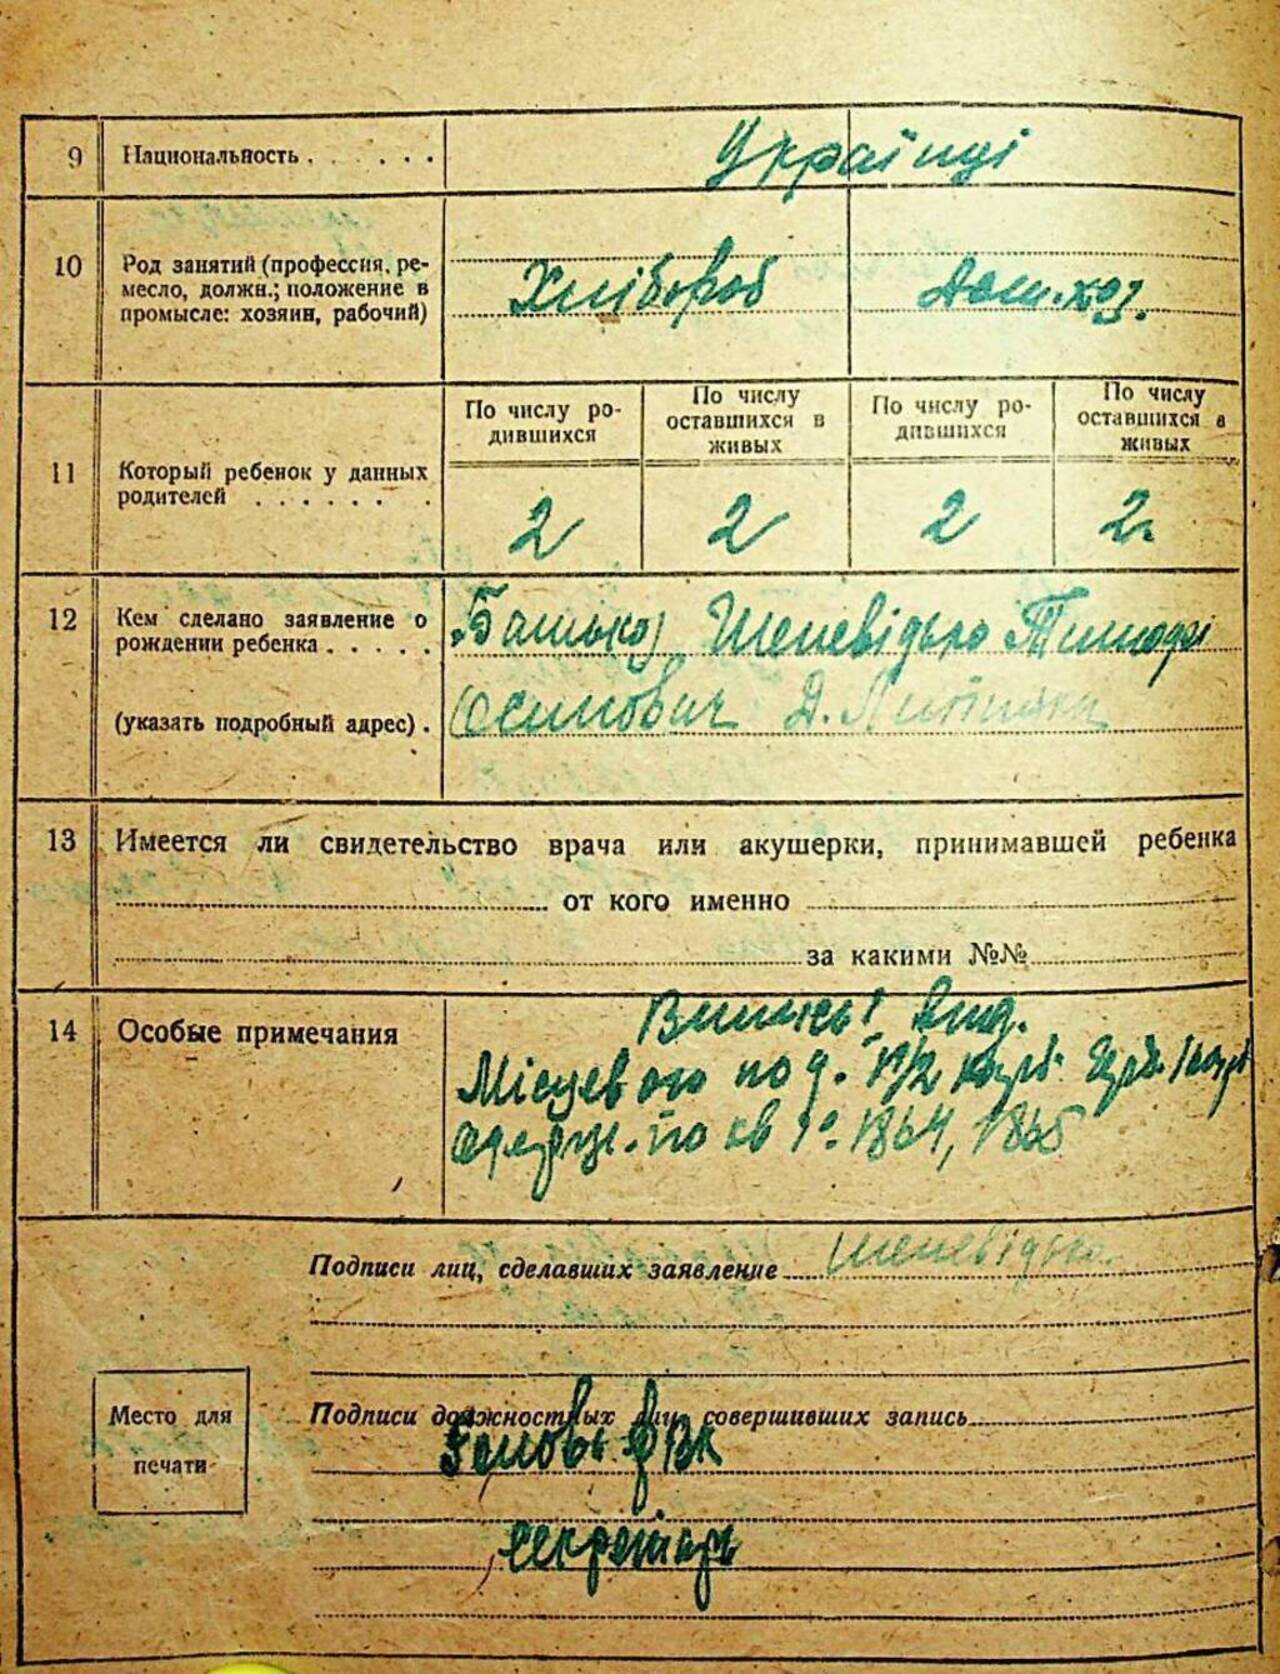 9 Национальность . . . . . . Українці
10 Род занятий (профессия, ре-
месло, должн.; положение в
промысле: хозяин, рабочий)
Хлібороб Дом.хоз.
11 Который ребенок у данных
родителей . . . . . . .
По числу ро-
дившихся
По числу
оставшихся в
живых
По числу ро-
дившихся
По числу
оставшихся в
живых
2 2 2 2.
12 Кем сделано заявление о
рождении ребенка . . . . .
(указать подробный адрес) .
Батько Шепевідько
Осипович Д.
13 Имеется ли свидетельство врача или акушерки, принимавшей ребенка
от кого именно
за какими №№
14 Особые примечания
Місцевого по
по кв 1864, 1865
Подписи лиц, сделавших заявление Шепевідько
Место для
печати
Подписи должностных лиц, совершивших запись
Голова
Секретарь